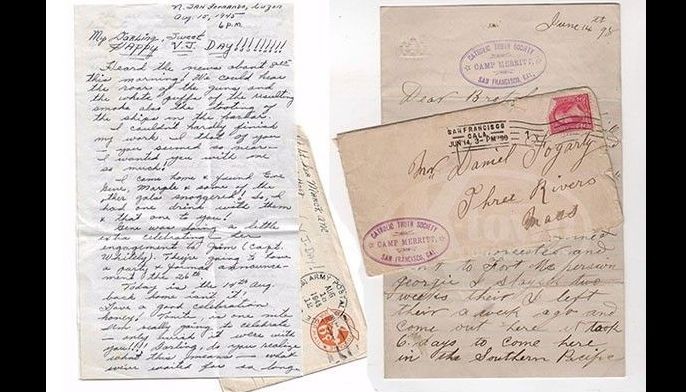 N. San Fernando, Luzon
Aug. 15, 1945
6 P.M.
My Darling, Sweet
HAPPY V.J. DAY!!!!!!!!!
Heard the news about 8:00
this morning! We could hear
the roar of the guns and
the white puffs of the resulting
smoke also the tooting of
the ships in the harbor.
I couldn't hardly finish
my work I thot of you
you seemed so near -
I wanted you with me
so much!
I came home & found
Gene, Margle & some of the
other gals snoggered! So, I
had one drink with them
& that one to you!
Gene was doing a little
extra celebrating - her
engagement to Jim (Capt.
Whittly). They're going to have
a party & formal announce-
ment the 26th
Today is the 14th Aug.
back home isn't it?
Have a good celebration
honey! Tonite, in one mile
I'm really going to celebrate
- only wish it were with
you!!!! Darling do you realize
what this means - what
we've waited for so long
ARMY POSTAL
AUG
1945
June 14th 98
CATHOLIC TRUTH SOCIETY
CAMP MERRITT,
SAN FRANCISCO, CAL.
Dear
SAN FRANCISCO
CALA.
JUN 14, 3-PM '98
Mr Daniel Fogarty
Three Rivers
Mass
CATHOLIC TRUTH SOCIETY
CAMP MERRITT,
SAN FRANCISCO, CAL.
to Fort
georgie I stayed two
weeks their I left
their a week ago and
come out here it took
6 days to come here
in the Southern Pacific